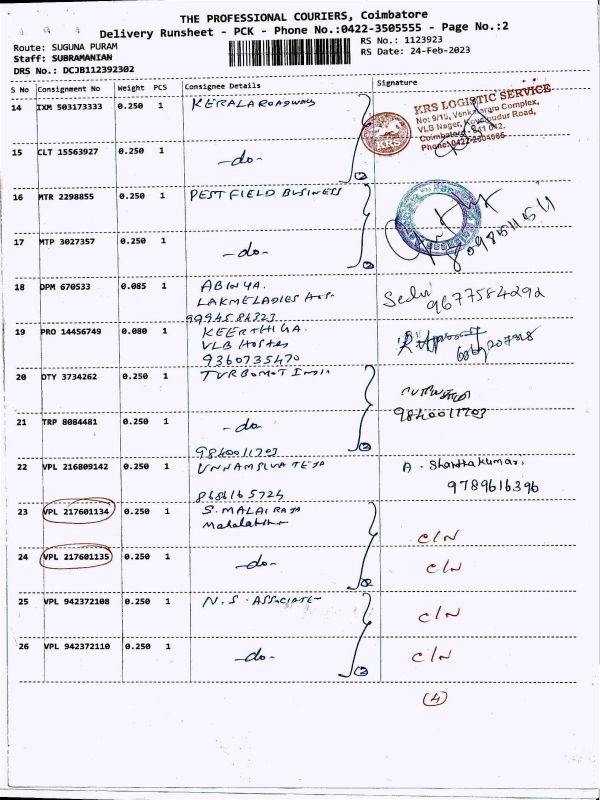 THE PROFESSIONAL COURIERS, Coimbatore
Delivery Runsheet - PCK - Phone No.:0422-3505555 - Page No.:2
Route: SUGUNA PURAM
RS No.: 1123923
Staff: SUBRAMANIAN
RS Date: 24-Feb-2023
DRS No.: DCJB112392302
S No Consignment No Weight PCS Consignee Details Signature
14 IXM 503173333 0.250 1 KERALA Roadways
KRS LOGISTIC SERVICE
No: 9/15, Venkataram Complex,
VLB Nagar, Kovaipudur Road,
Coimbatore - 641 042.
KRS
15 CLT 15563927 0.250 1 -do-
16 MTR 2298855 0.250 1 PEST FIELD BUSINESS
17 MTP 3027357 0.250 1 -do-
18 DPM 670533 0.085 1 ABINYA.
LAKMELADIES
Selvi 9677584292
19 PRO 14456749 0.080 1 KEERTHIGA.
VLB Hostel
9360735470
20 DTY 3734262 0.250 1 TURBOMOT India
21 TRP 8084481 0.250 1 -do-
9840011703
9840011703
22 VPL 216809142 0.250 1
A. Shanthakumar.
9789616396
8686165724
23 VPL 217601134 0.250 1 S. MALAIRAJA
C/N
24 VPL 217601135 0.250 1 -do- C/N
25 VPL 942372108 0.250 1 N.S. ASSOCIATE C/N
26 VPL 942372110 0.250 1 -do- C/N
(4)